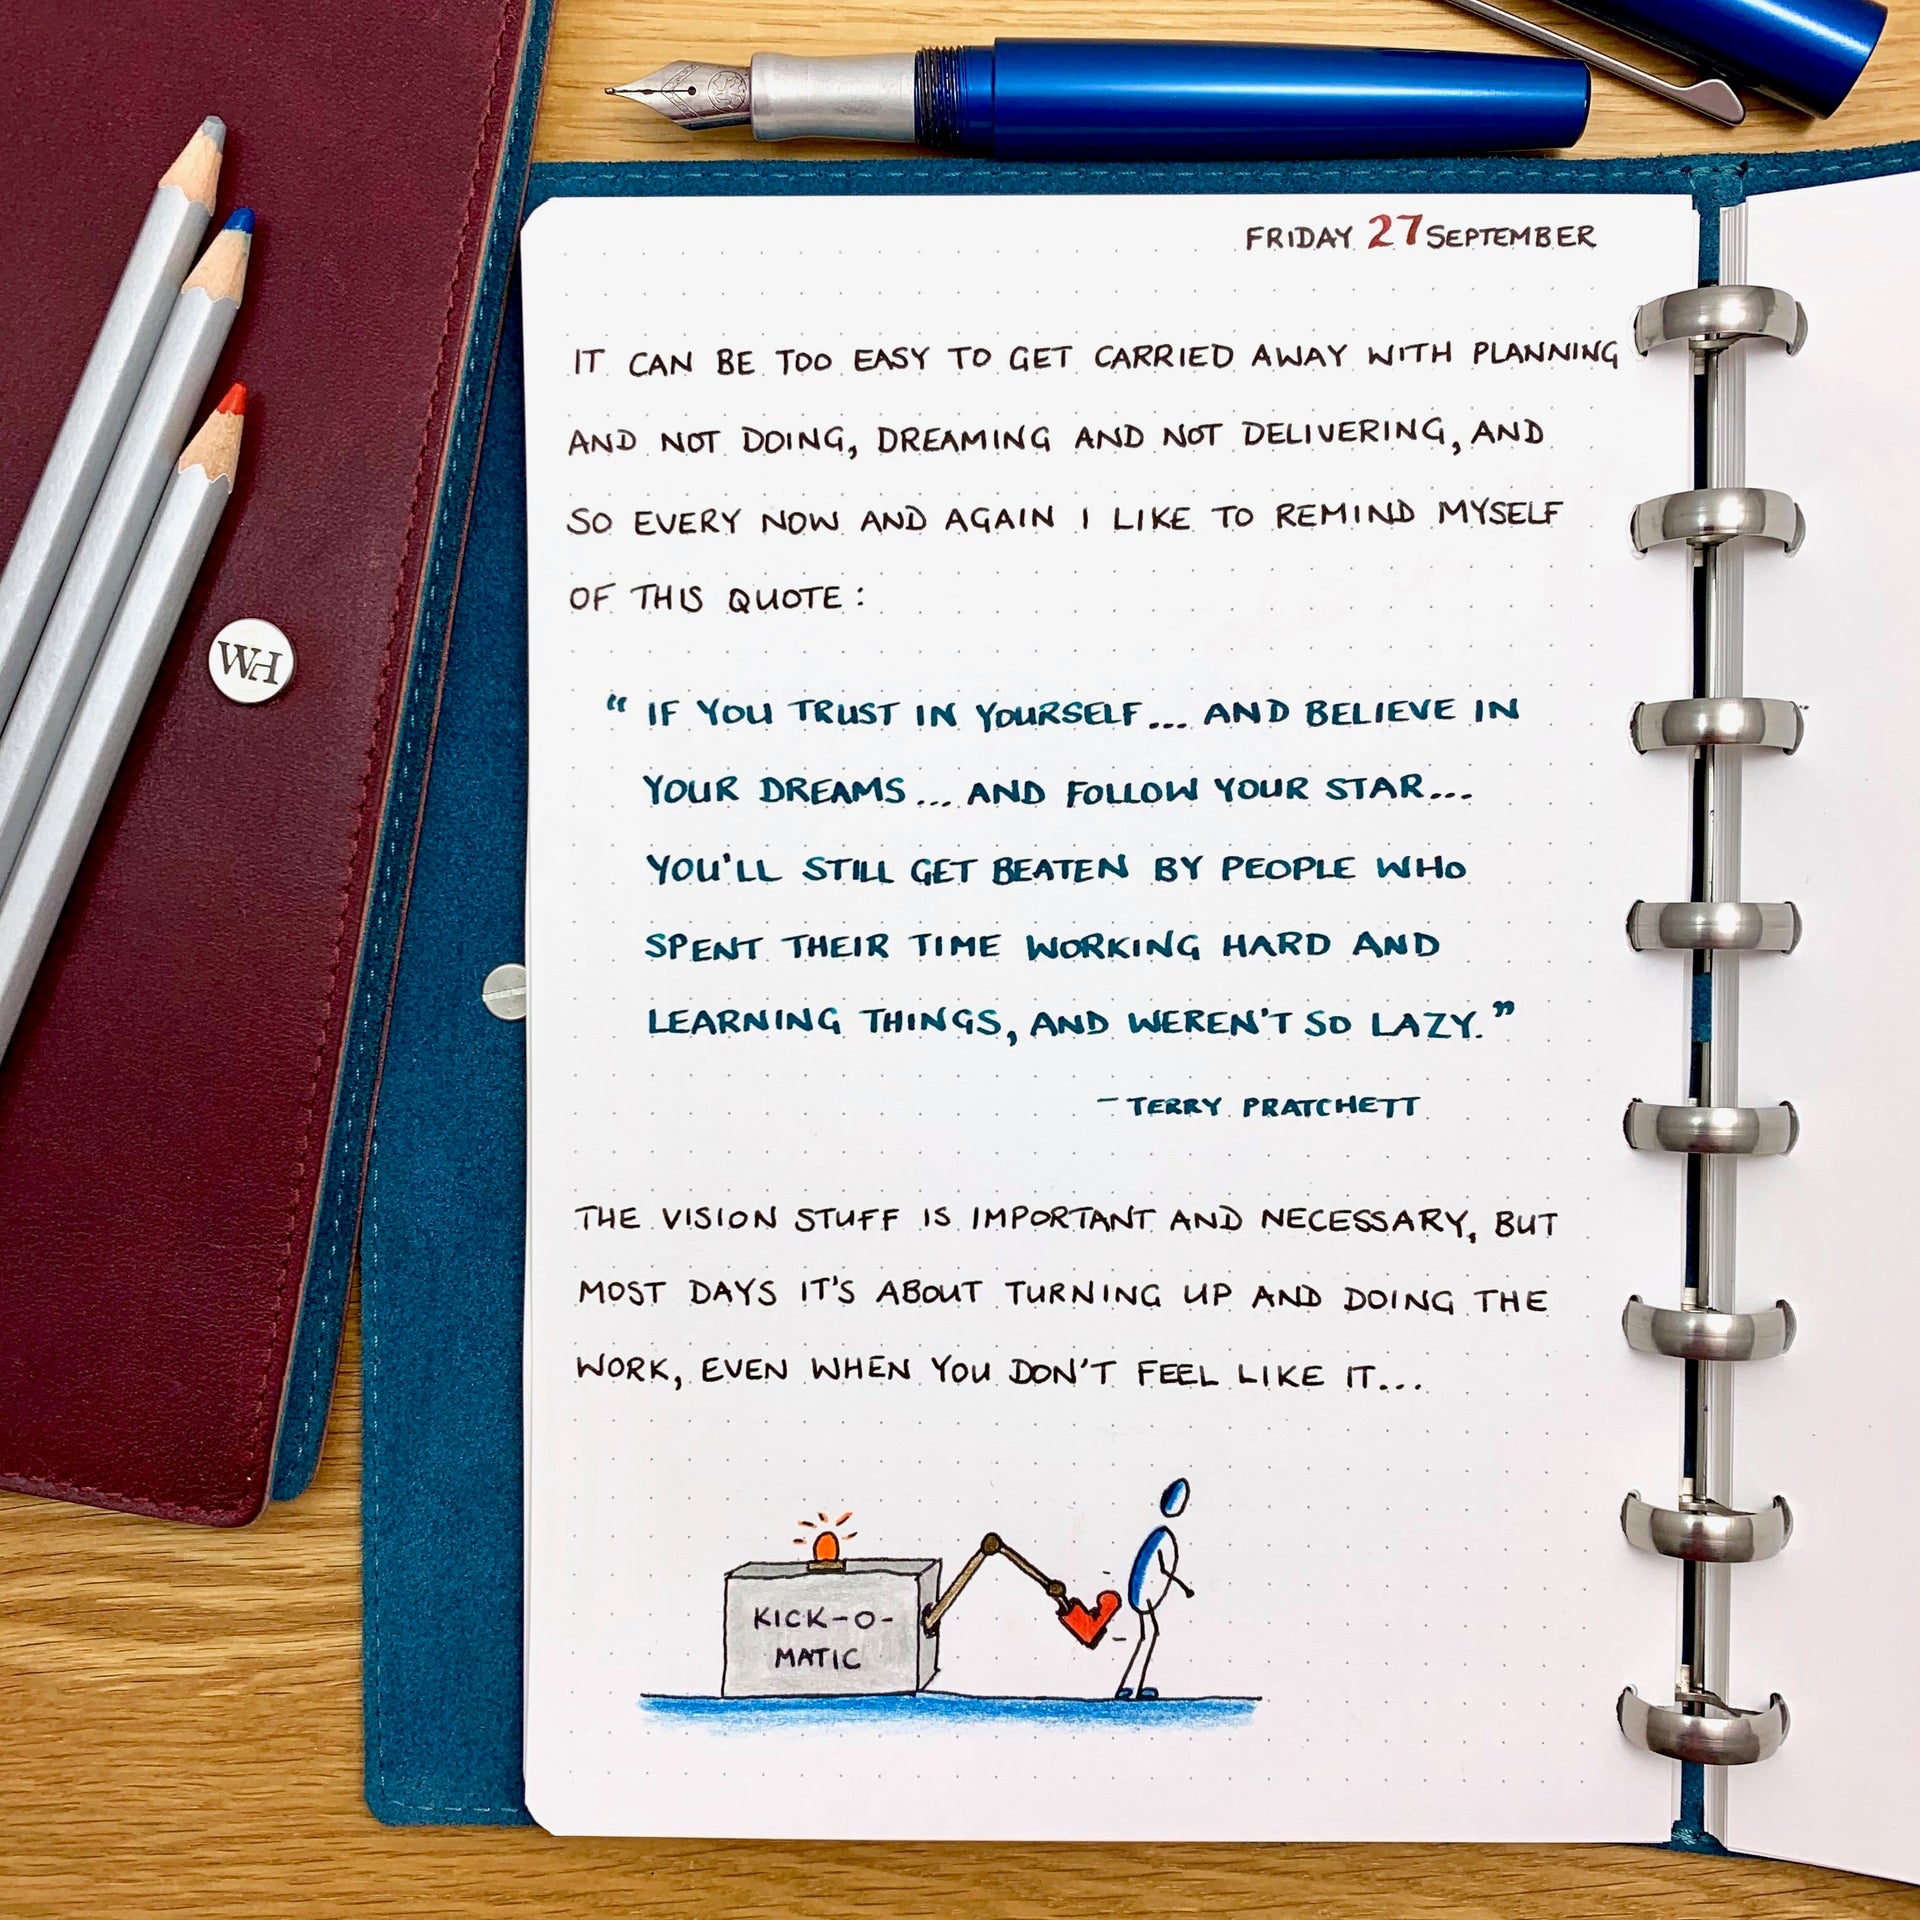 FRIDAY 27 SEPTEMBER
IT CAN BE TOO EASY TO GET CARRIED AWAY WITH PLANNING
AND NOT DOING, DREAMING AND NOT DELIVERING, AND
SO EVERY NOW AND AGAIN I LIKE TO REMIND MYSELF
OF THIS QUOTE:
“ IF YOU TRUST IN YOURSELF... AND BELIEVE IN
YOUR DREAMS... AND FOLLOW YOUR STAR...
YOU'LL STILL GET BEATEN BY PEOPLE WHO
SPENT THEIR TIME WORKING HARD AND
LEARNING THINGS, AND WEREN'T SO LAZY.”
- TERRY PRATCHETT
THE VISION STUFF IS IMPORTANT AND NECESSARY, BUT
MOST DAYS IT'S ABOUT TURNING UP AND DOING THE
WORK, EVEN WHEN YOU DON'T FEEL LIKE IT...
KICK-O-
MATIC
WH